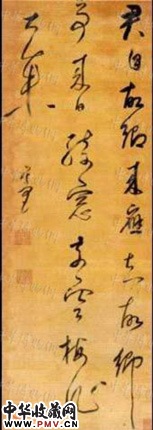 君自故鄉來應知故鄉
事來日綺窗前寒梅著
花未
中华收藏网
WWW.PMV.CN